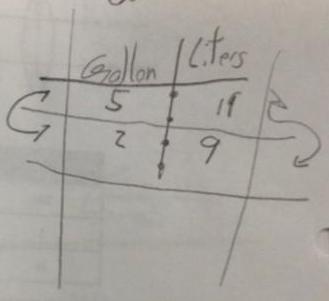 Gallon Liters
5 19
2 9